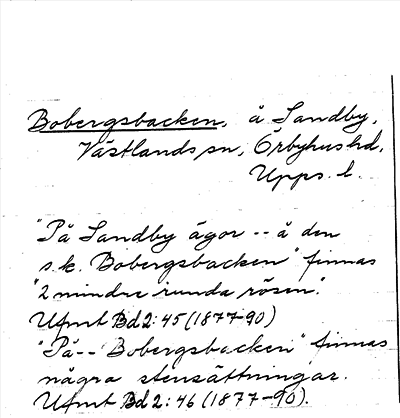 Bobergsbacken, å Sandby,
Västlands sn, Örbyhus hd,
Upps. l.
"På Sandby ägor -- å den
s.k. Bobergsbacken" finnas
"2 mindre runda rösen".
Ufmt Bd 2:45 (1877-90)
"På -- Bobergsbacken" finnas
några stensättningar.
Ufmt Bd 2:46 (1877-90).